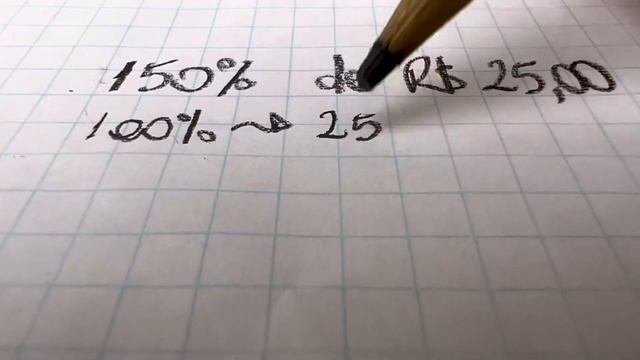 150% de R$ 25,00
100% → 25